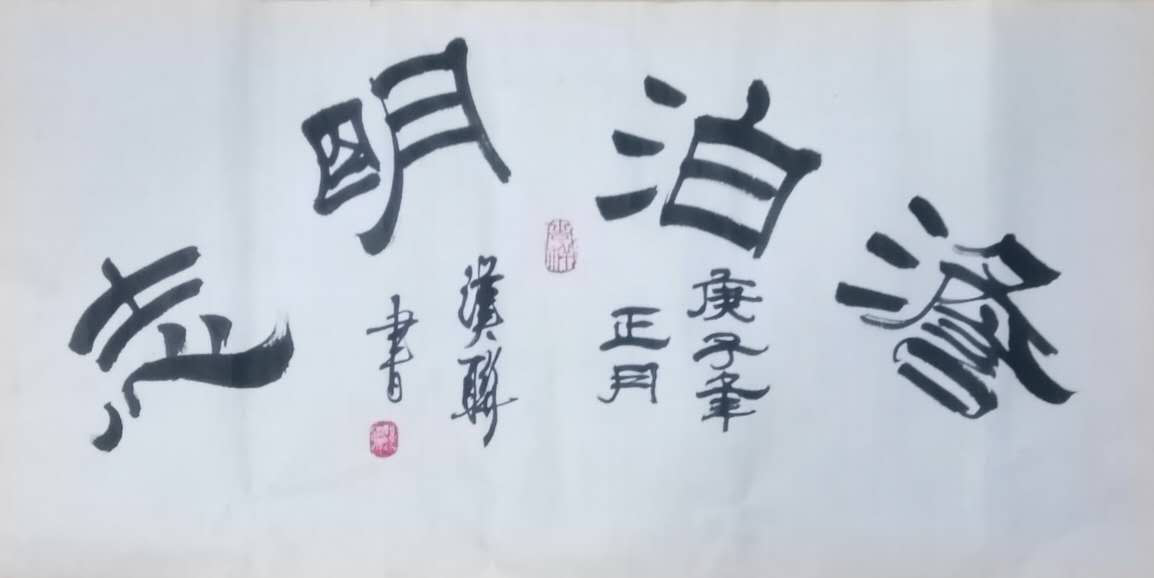 澹泊明志
庚子年
正月
漢聯
書